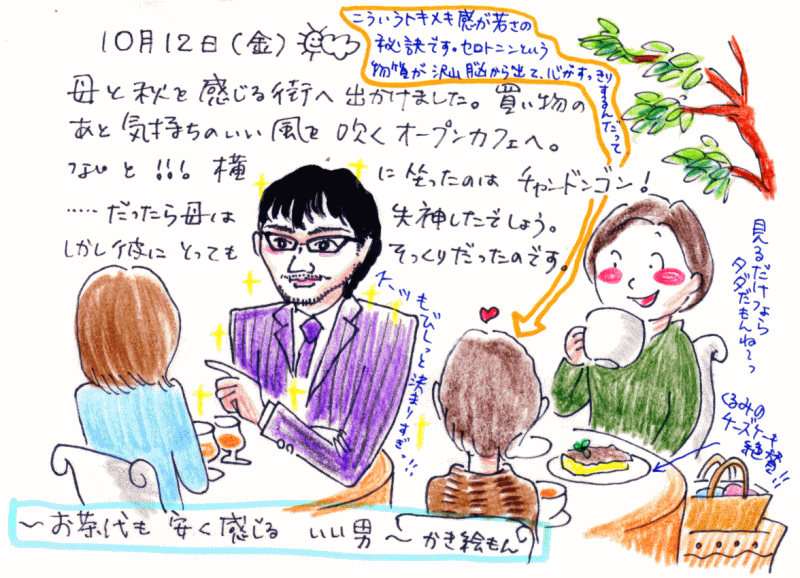 10月12日(金)
こういうトキメキ感が若さの
秘訣です。セロトニンという
物質が沢山脳から出て、心がすっきり
するんだって
母と秋を感じる街へ出かけました。買い物の
あと気持ちのいい風を吹くオープンカフェへ。
ないと!!! 横に坐ったのはチャンドンゴン!
.....だったら母は失神したでしょう。
しかし彼にとってもそっくりだったのです。
スーツもびしっと決まりすぎっ!!
見るだけなら
タダだもんね〜っ
くるみの
チーズケーキ
絶賛!!
〜お茶代も安く感じる いい男〜 かき絵もん